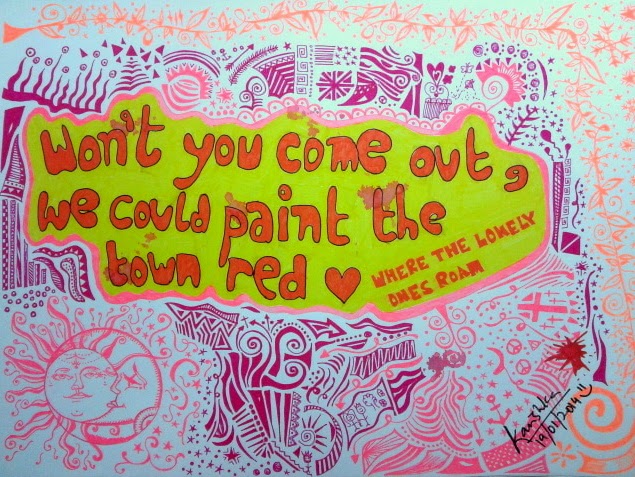 Won't you come out,
we could paint the
town red
WHERE THE LONELY
ONES ROAM
19/01/2014